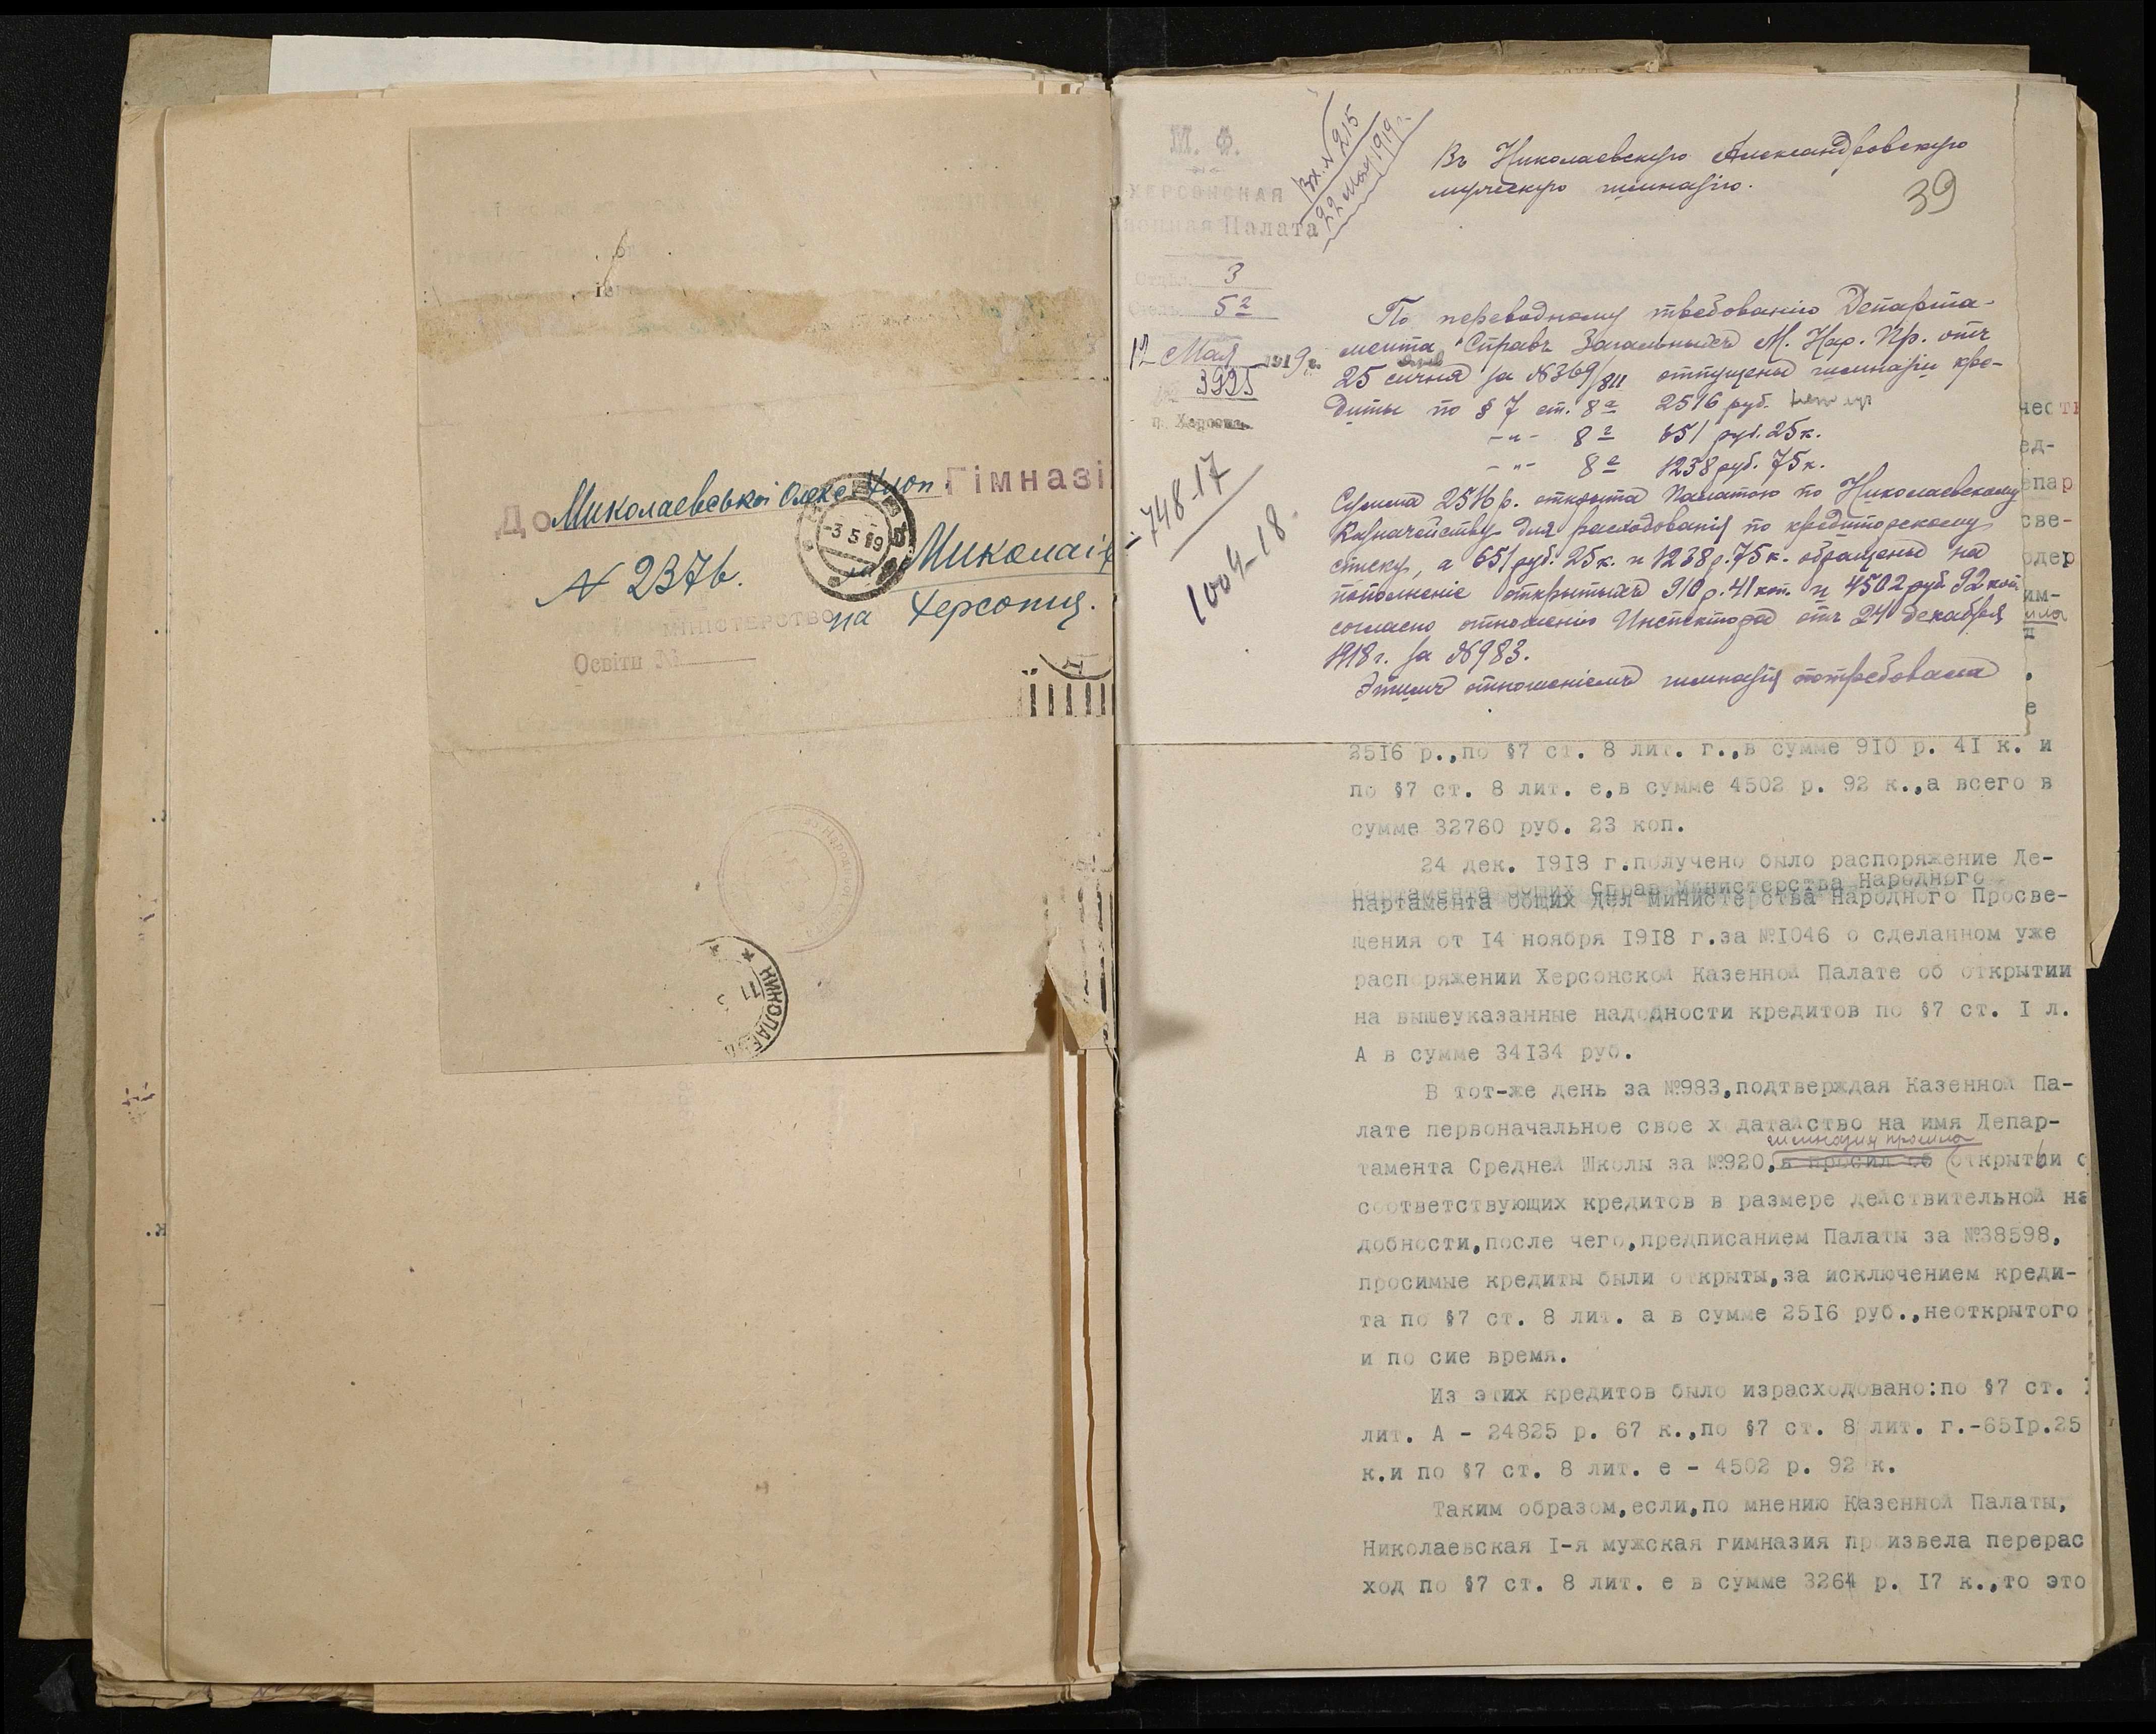 До Миколаевськоі Олександ. чол. Гімназі
№ 2376. Миколаів
на Херсонщ.
МІНІСТЕРСТВО
Освіти №
-3 5 19
НИКОЛАЕВ
М. Ф.
ХЕРСОНСКАЯ
Казенная Палата
3
5 г
12 Мая 1919 г.
№ 3995
г. Херсонъ.
Вх. № 215
22 Мая 1919 г.
748-17
1004-18
Въ Николаевскую Александровскую
мужскую гимназію.
39
По переводному требованію Департа-
мента Справъ Загальныхъ М. Нар. Пр. отъ
25 сичня за №369/811 отпущены гимназіи кре-
диты по § 7 ст. 8 а 2516 руб.
-"- 8 г 651 руб. 25 к.
-"- 8 е 1238 руб. 75 к.
Сумма 2516 р. открыта Палатою по Николаевскому
Казначейству для расходованія по кредиторскому
списку, а 651 руб. 25 к. и 1238 р. 75 к. обращены на
пополненіе открытыхъ 910 р. 41 коп. и 4502 руб. 92 коп.
согласно отношенію Инспектора отъ 24 декабря
1918 г. за №983.
Этимъ отношеніемъ гимназія потребовала
чест
ед-
епар
све-
одер
им-
ила
е
2516 р.,по §7 ст. 8 лит. г.,в сумме 910 р. 41 к. и
по §7 ст. 8 лит. е,в сумме 4502 р. 92 к.,а всего в
сумме 32760 руб. 23 коп.
24 дек. 1918 г.получено было распоряжение Де-
партамента Общих Справ Министерства Народного
партамента Общих Дел Министерства Народного Просве-
щения от 14 ноября 1918 г.за №1046 о сделанном уже
распоряжении Херсонской Казенной Палате об открытии
на вышеуказанные надобности кредитов по §7 ст. I л.
А в сумме 34134 руб.
В тот-же день за №983,подтверждая Казенной Па-
лате первоначальное свое ходатайство на имя Депар-
гимназия просила
тамента Средней Школы за №920,я просил об открытии с
соответствующих кредитов в размере действительной на
добности,после чего,предписанием Палаты за №38598,
просимые кредиты были открыты,за исключением креди-
та по §7 ст. 8 лит. а в сумме 2516 руб.,неоткрытого
и по сие время.
Из этих кредитов было израсходовано:по §7 ст.
лит. А - 24825 р. 67 к.,по §7 ст. 8 лит. г.-651р.25
к.и по §7 ст. 8 лит. е - 4502 р. 92 к.
Таким образом,если,по мнению Казенной Палаты,
Николаевская I-я мужская гимназия произвела перерас
ход по §7 ст. 8 лит. е в сумме 3264 р. 17 к.,то это